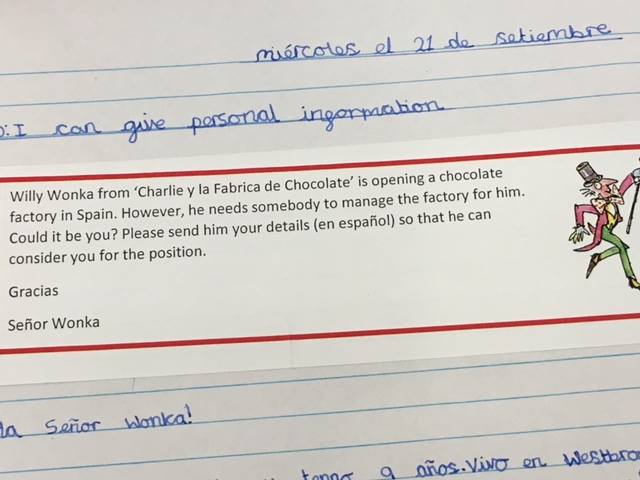 miércoles el 21 de setiembre
o: I can give personal ingormation
Willy Wonka from ‘Charlie y la Fabrica de Chocolate’ is opening a chocolate
factory in Spain. However, he needs somebody to manage the factory for him.
Could it be you? Please send him your details (en español) so that he can
consider you for the position.
Gracias
Señor Wonka
la Señor Wonka!
tengo 9 años. Vivo en Westbro